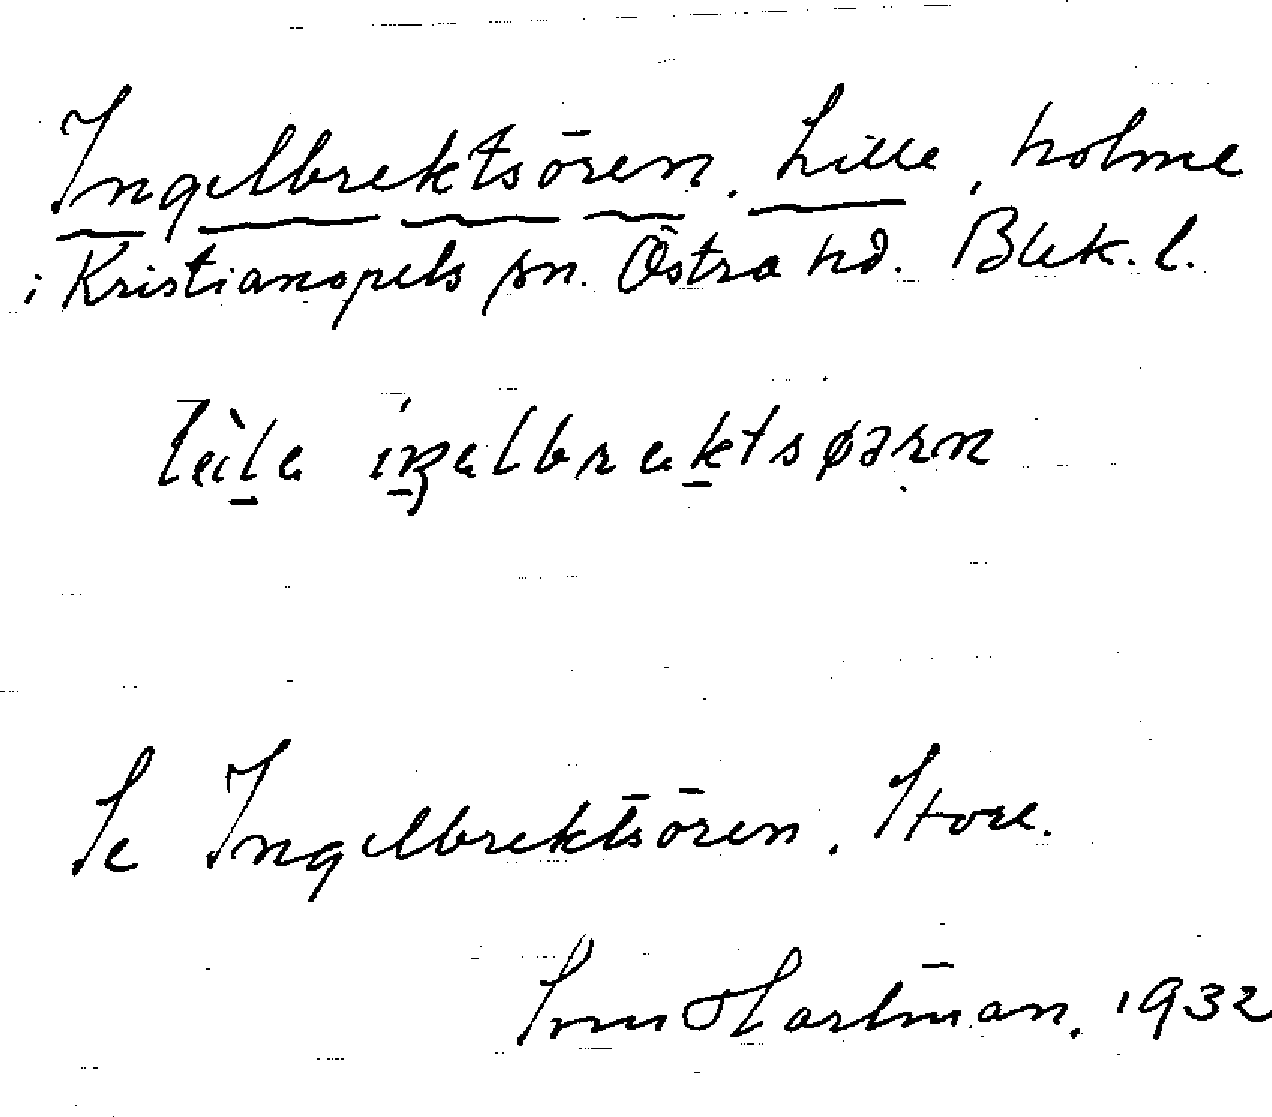 Ingelbrektsören, Lille, holme
i Kristianopels sn. Östra hd. Blek. l.
Se Ingelbrektsören, Store.
Hartman, 1932